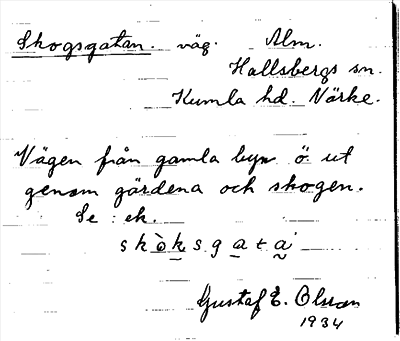 Skogsgatan. väg. Alm.
Hallsbergs sn.
Kumla hd. Närke.
Vägen från gamla byn ö. ut
genom gärdena och skogen.
Se : ek.
skò̱ḵsga̱ta̰
Gustaf E. Olsson
1934